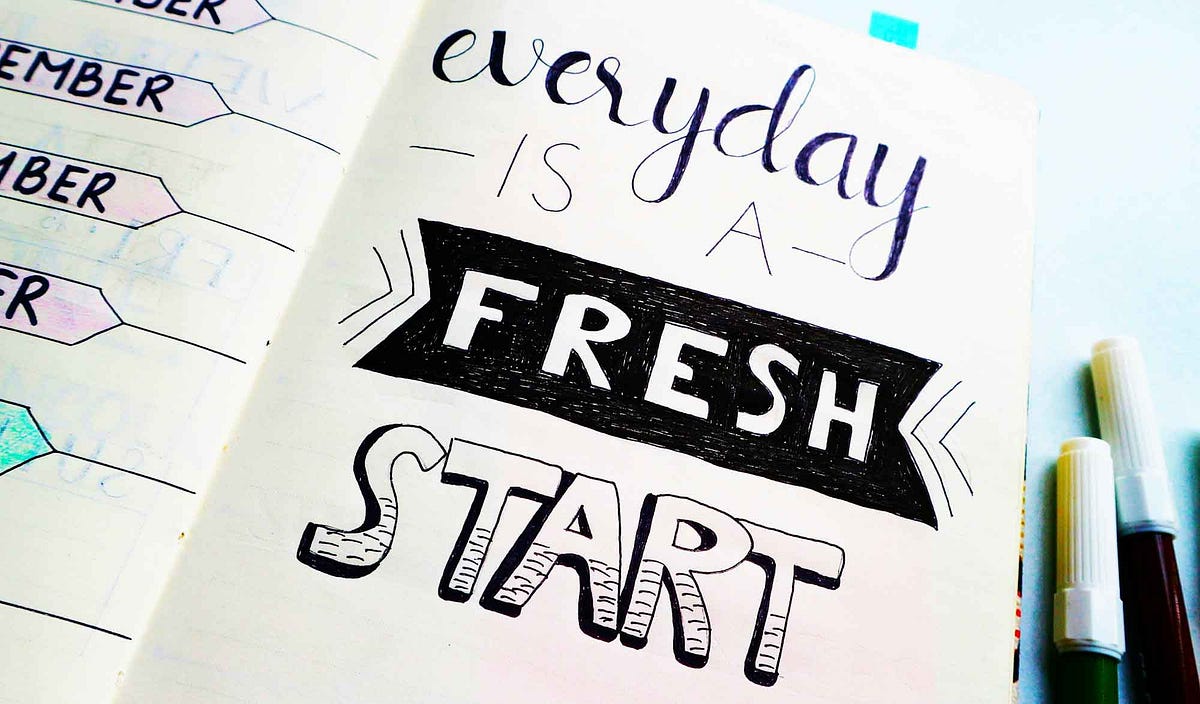 EMBER
MBER
ER
everyday
IS A
FRESH
START